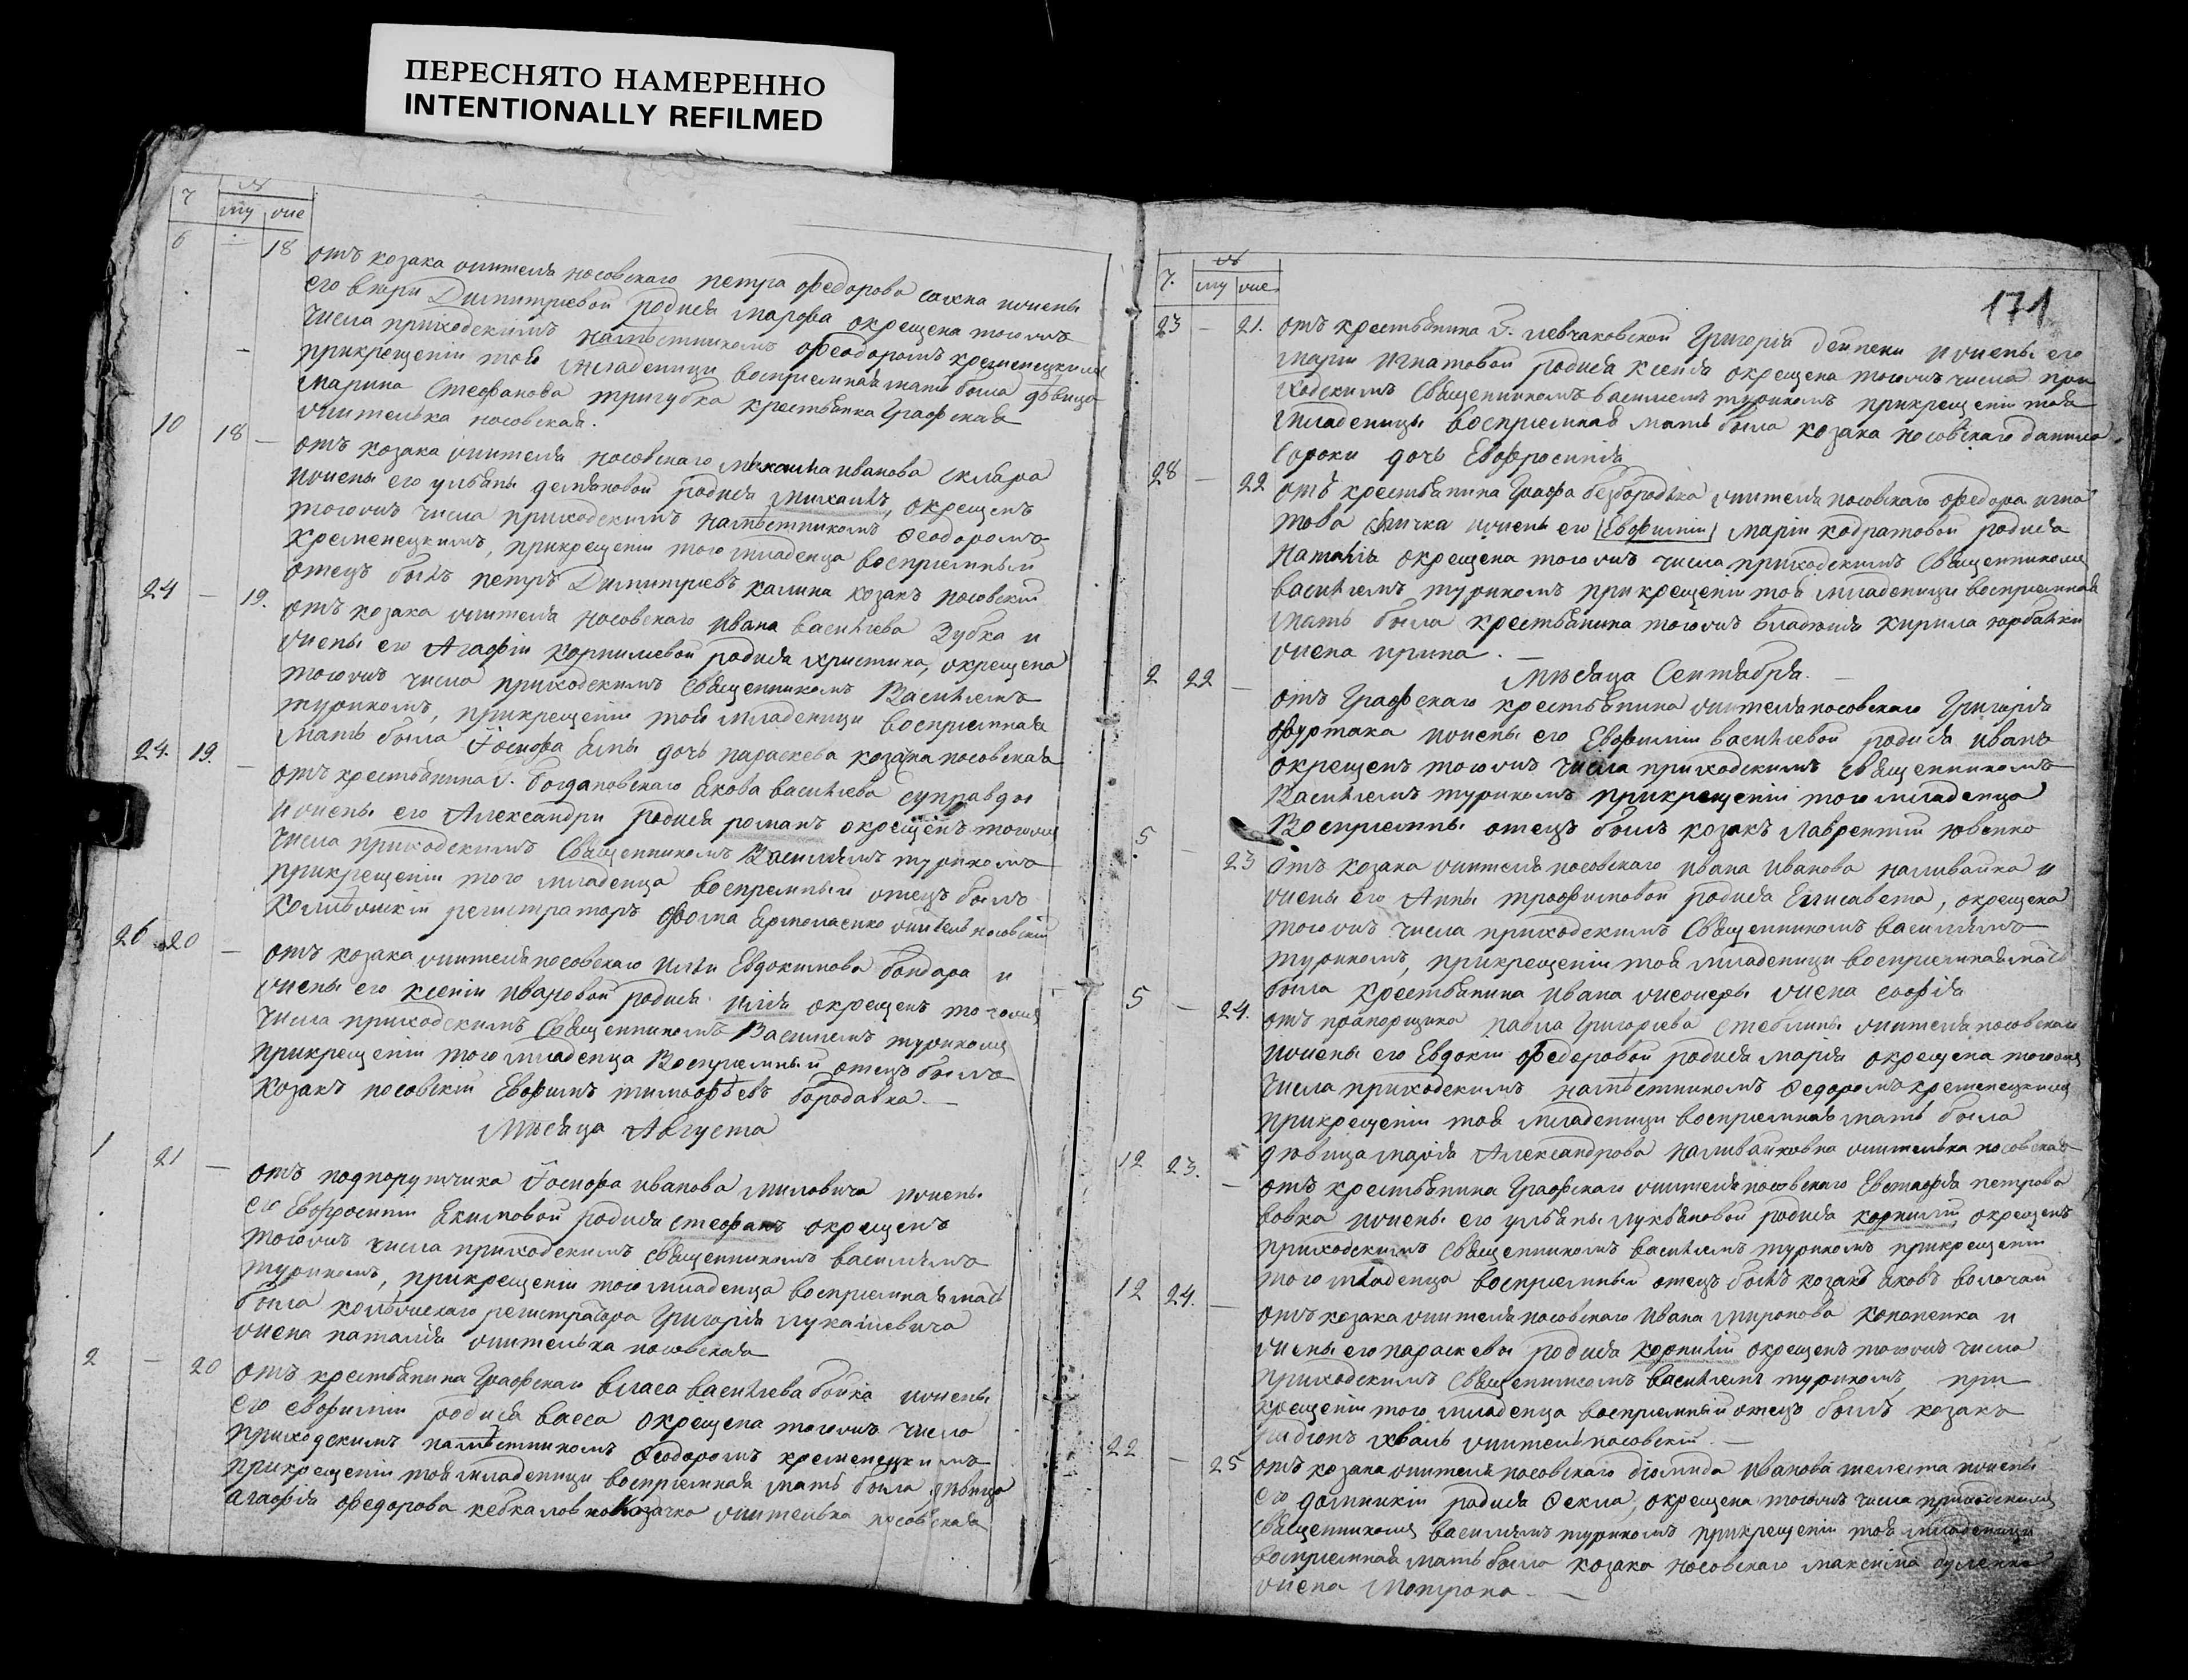 ПЕРЕСНЯТО НАМЕРЕННО
INTENTIONALLY REFILMED
Ч №
му же
6 — 18 отъ козака жителя носовскаго петра федорова сажна ижены
его вѣкри Димитріевой родися марфа окрещена тогожъ
числа приходскимъ намѣстникомъ Феодоромъ кременецкимъ
прикрещеніи тоя младеницы воспріемная мать была дѣвица
марина Стефанова тригубка крестьянка Графская
жителька носовская.
10 18 — отъ козака жителя носовскаго михаила иванова скляра
ижены его ульяны демяновой родися михаилъ, окрещенъ
тогожъ числа приходскимъ намѣстникомъ Феодоромъ
кременецкимъ, прикрещеніи того младенца воспріемный
отецъ былъ петръ Димитріевъ калина козакъ носовскій
24 — 19. отъ козака жителя носовскаго ивана василіева Зубка и
жены его Агафіи корниліевой родися христина, окрещена
тогожъ числа приходскимъ священникомъ Василіемъ
туриномъ, прикрещеніи тоя младеницы воспріемная
мать была Іосифа дочь параскева козачка носовская
24. 19. — отъ крестьянина г. богдановскаго якова василіева суправды
ижены его Александри родися романъ окрещенъ тогожъ
числа приходскимъ священникомъ Василіемъ туриномъ
прикрещеніи того младенца воспріемный отецъ былъ
колѣжскій регистраторъ фома Ермолаенко житель носовскій
26 20 — отъ козака жителя носовскаго ильи Евдокимова бондара и
жены его ксеніи ивановой родися илія окрещенъ тогожъ
числа приходскимъ священникомъ Василіемъ туриномъ
прикрещеніи того младенца Воспріемный отецъ былъ
козакъ носовскій Евфимъ тимофѣевъ бородавка —
Мѣсяца Августа
1 21 — отъ подпорутчика Іосифа иванова миловича ижены
его Евфросиніи якимовой родися стефанъ окрещенъ
тогожъ числа приходскимъ священникомъ василіемъ
туриномъ, прикрещеніи того младенца воспріемная мать
была колѣжскаго регистратора Григорія лукашевича
жена наталія жителька носовская
2 — 20 отъ крестьянина Графскаго власа василіева бойка ижены
его евфиміи родися васса окрещена тогожъ числа
приходскимъ намѣстникомъ Феодоромъ кременецкимъ
прикрещеніи тоя младеницы воспріемная мать была дѣвица
агафія федорова кебкаловна козачка жителька носовская
171
Ч. №
му же
23 — 21. отъ крестьянина Г. левчаковской Григорія дейнеки ижены его
маріи игнатовой родися ксенія окрещена тогожъ числа при
ходскимъ священникомъ василіемъ туриномъ прикрещеніи тоя
младеницы воспріемная мать была козака носовскаго данила
Сороки дочь Евфросинія
28 — 22 отъ крестьянина Графа безбородька жителя носовскаго федора игна
това ижены его [Евфиміи] маріи кодратовой родися
наталія окрещена тогожъ числа приходскимъ священникомъ
василіемъ туриномъ прикрещеніи тоя младеницы воспріемная
мать была крестьянина тогожъ владѣнія кирила
жена ирина. —
Мѣсяца Сентября. —
2 22 — отъ Графскаго крестьянина жителя носовскаго Григорія
фуртака ижены его Евфиміи василіевой родися иванъ
окрещенъ тогожъ числа приходскимъ священникомъ
Василіемъ туриномъ прикрещеніи того младенца
Воспріемны отецъ былъ козакъ лаврентій ювенко
5 — 23 отъ козака жителя носовскаго ивана иванова наливайка и
жены его Анны трофимовой родися Елисавета, окрещена
тогожъ числа приходскимъ священникомъ василіемъ
туриномъ, прикрещеніи тоя младеницы воспріемная мать
была крестьянина ивана жена софія
5 — 24. отъ прапорщика павла Григоріева стеблины жителя носовскаго
ижены его Евдокіи федоровой родися марія окрещена тогожъ
числа приходскимъ намѣстникомъ Федоромъ кременецкимъ
прикрещеніи тоя младеницы воспріемная мать была
дѣвица марія Александрова наливайковна жителька носовская
12 23. — отъ крестьянина Графскаго жителя носовскаго Евстафія петрова
вовка ижены его ульяны лукьяновой родися корнилій, окрещенъ
приходскимъ священникомъ василіемъ туриномъ прикрещеніи
того младенца воспріемный отецъ былъ козакъ яковъ волочай
12 24. — отъ козака жителя носовскаго ивана миронова кононенка и
жены его параскевы родися корнилій окрещенъ тогожъ числа
приходскимъ священникомъ василіемъ туриномъ, при
крещеніи того младенца воспріемный отецъ былъ козакъ
хваль житель носовскій. —
22 — 25 отъ козака жителя носовскаго діомида иванова шелеста ижены
его домникіи родися Фекла, окрещена тогожъ числа приходскимъ
священникомъ василіемъ туриномъ прикрещеніи тоя младеницы
воспріемная мать была козака носовскаго максима
жена мотрона —